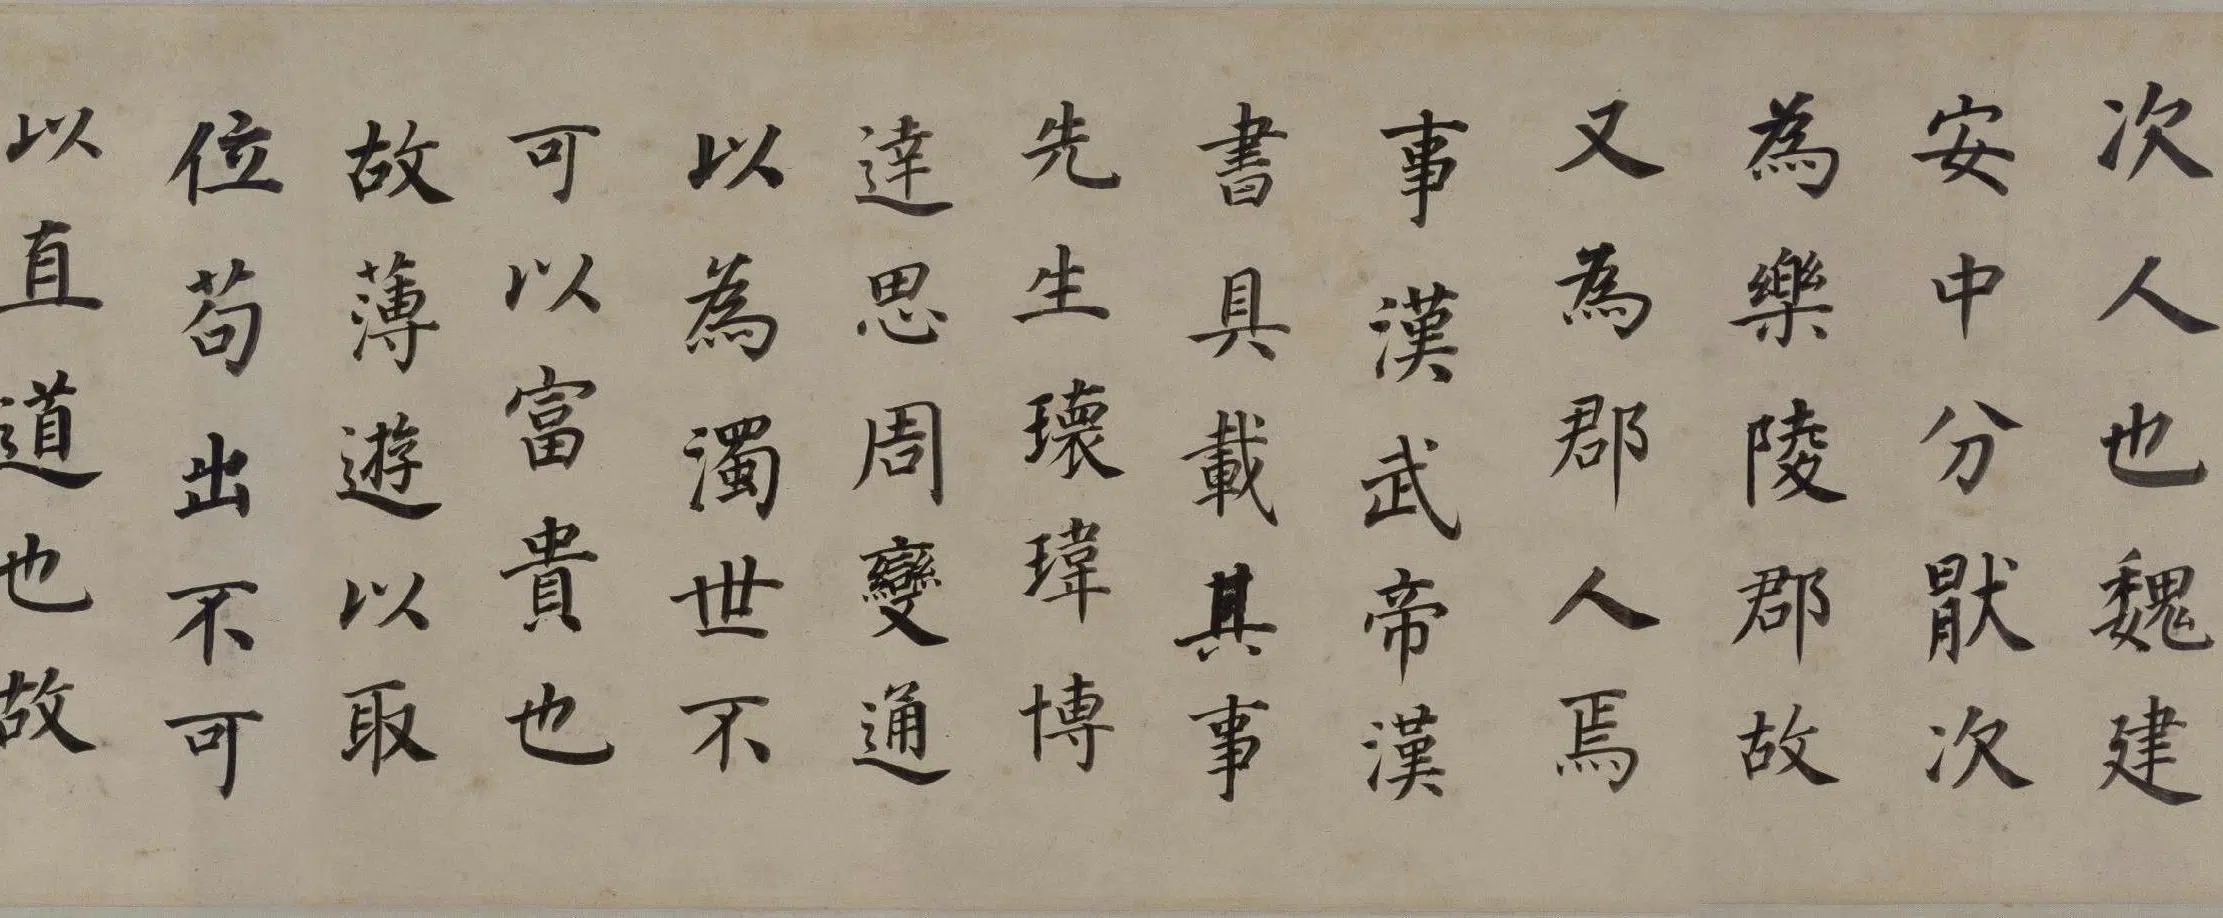 次人也魏建
安中分猒次
為樂陵郡故
又為郡人焉
事漢武帝漢
書具載其事
先生瓌瑋博
達思周變通
以為濁世不
可以富貴也
故薄遊以取
位苟出不可
以直道也故